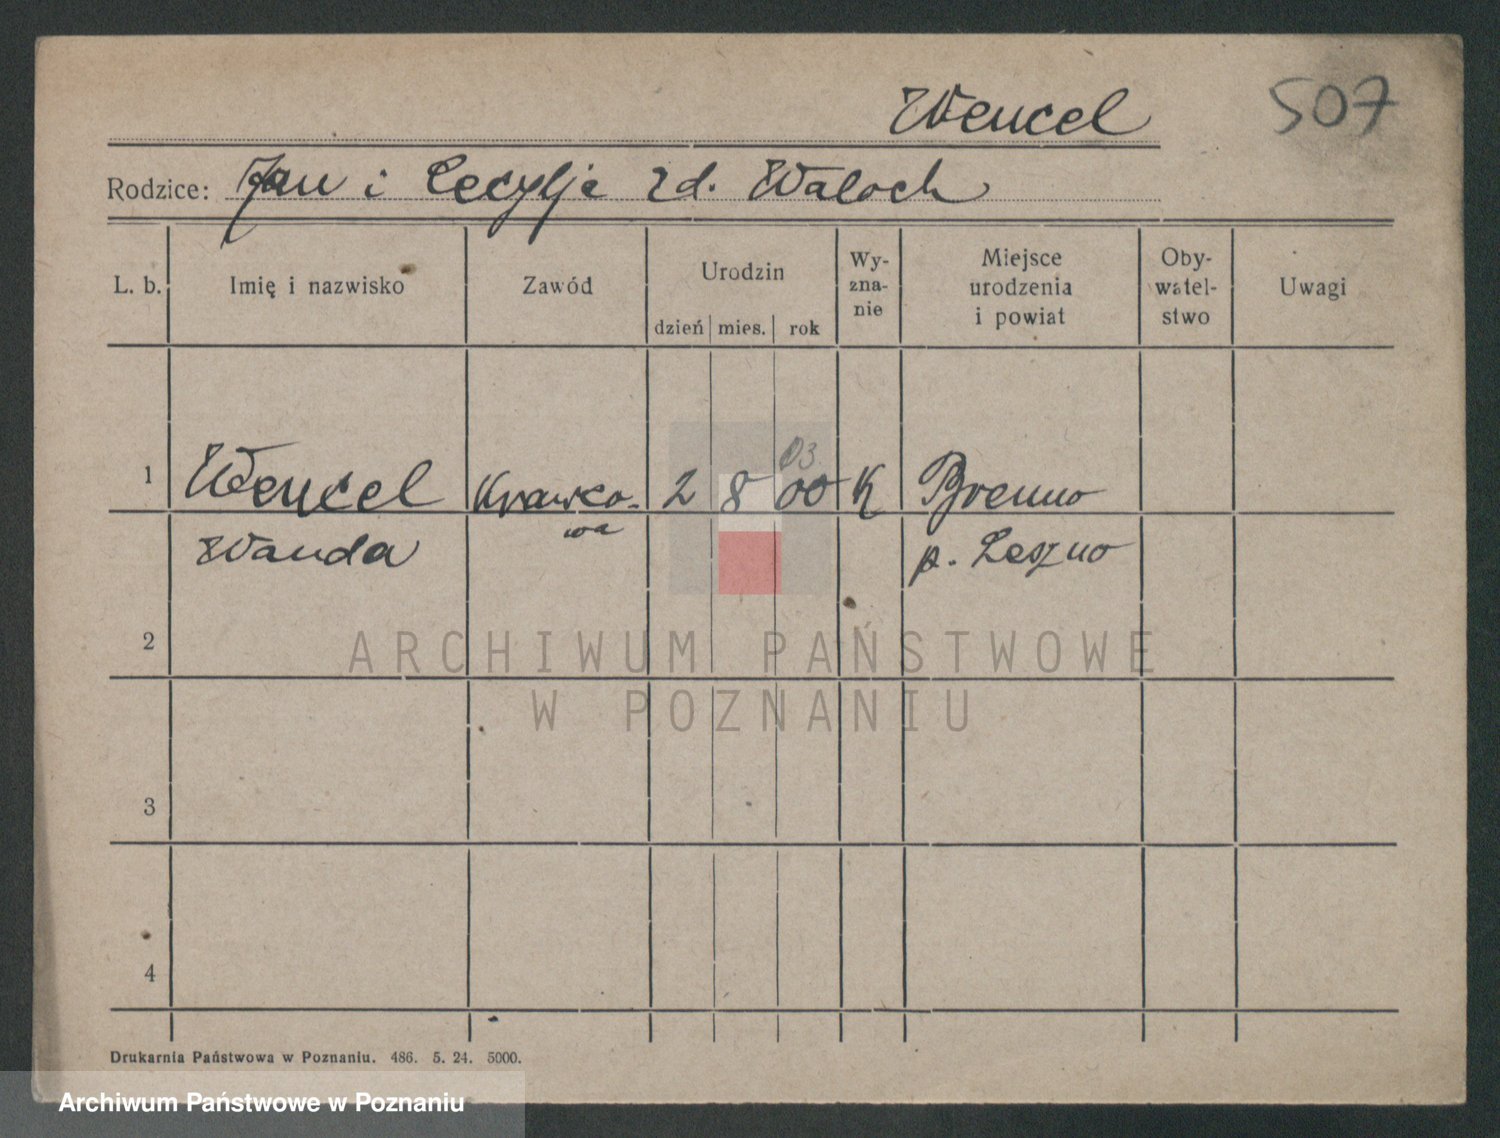 Wencel
507
Rodzice: Jan i Cecylje zd. Waloch
L. b.
Imię i nazwisko
Zawód
Urodzin
dzień mies. rok
Wy-
zna-
nie
Miejsce
urodzenia
i powiat
Oby-
watel-
stwo
Uwagi
03
1 Wencel Krawco- 2 8 00 K Brenno
Wanda wa p. Leszno
2
3
4
ARCHIWUM PAŃSTWOWE
W POZNANIU
Drukarnia Państwowa w Poznaniu. 486. 5. 24. 5000.
Archiwum Państwowe w Poznaniu